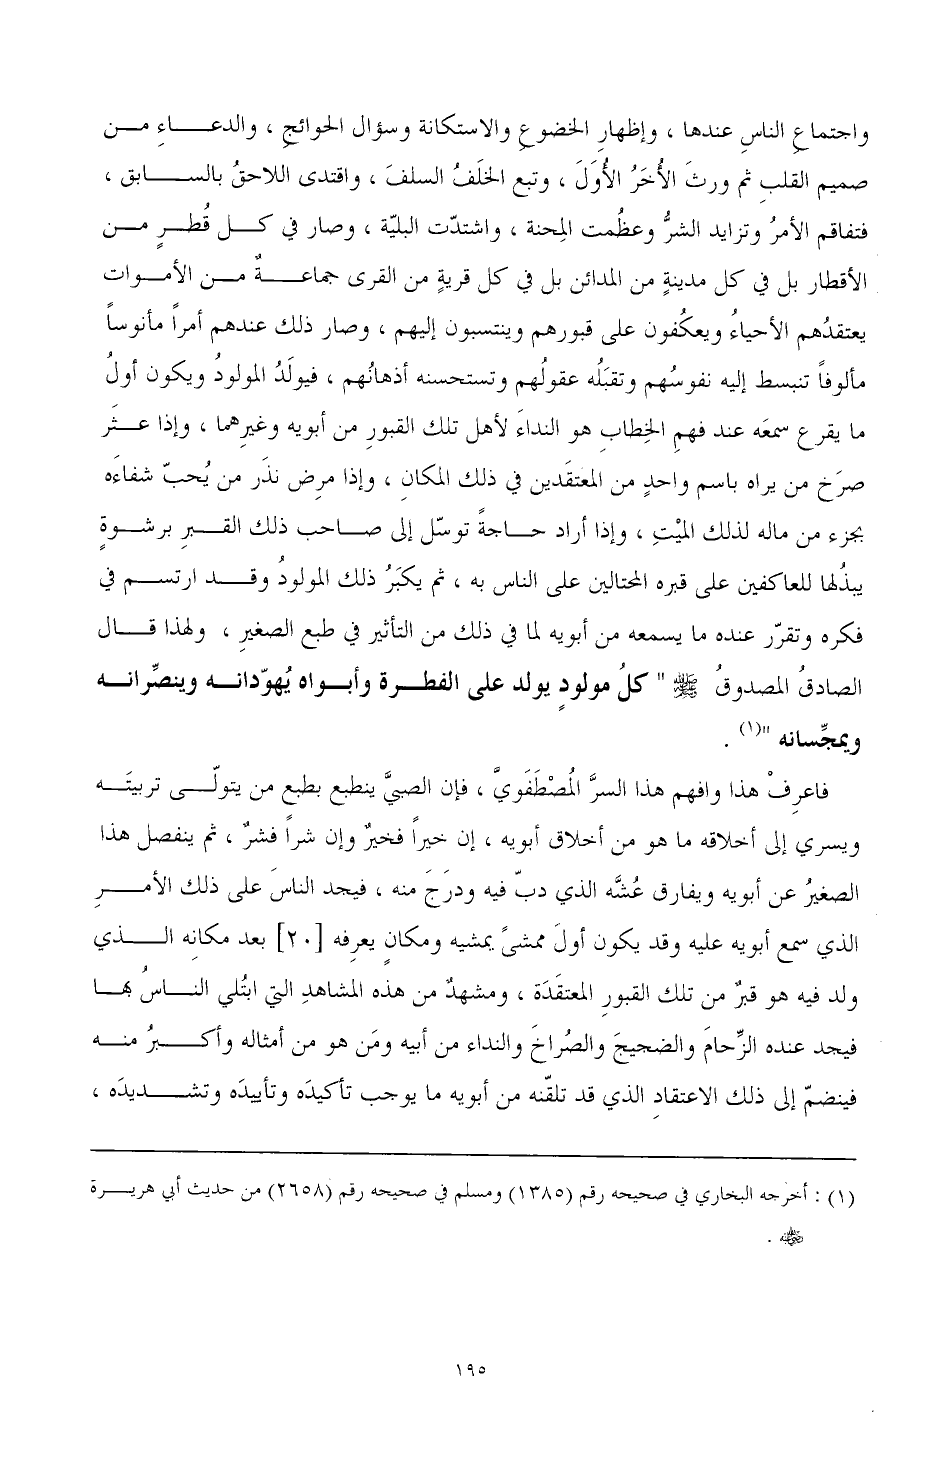 واجتماعِ الناسِ عندها ، وإظهارِ الخضوعِ والاستكانة وسؤال الحوائجِ ، والدعـــاءِ مـن
صميم القلبِ ثم ورثَ الأُخَرُ الأُوَلَ ، وتبع الخلَفُ السلفَ ، واقتدى اللاحقُ بالســـابق ،
فتفاقم الأمرُ وتزايد الشرُّ وعظُمت المِحنة ، واشتدّت البليّة ، وصار في كـــل قُطـــرٍ مـــن
الأقطار بل في كل مدينةٍ من المدائن بل في كل قريةٍ من القرى جماعـــةٌ مـــن الأمـــوات
يعتقدُهم الأحياءُ ويعكُفون على قبورهم وينتسبون إليهم ، وصار ذلك عندهم أمراً مأنوساً
مألوفاً تنبسط إليه نفوسُهم وتقبَلُه عقولُهم وتستحسنه أذهانُهم ، فيولَدُ المولودُ ويكون أولُ
ما يقرع سمعَه عند فهمِ الخِطاب هو النداءَ لأهل تلك القبورِ من أبويه وغيرِهما ، وإذا عـــثَر
صرَخ من يراه باسم واحدٍ من المعتقَدين في ذلك المكانِ ، وإذا مرِض نذَر من يُحبّ شفاءَه
بجزء من ماله لذلك الميْتِ ، وإذا أراد حـــاجةً توسّل إلى صـــاحب ذلك القـــبرِ برشـــوةٍ
يبذُلها للعاكفين على قبره المحتالين على الناس به ، ثم يكبَرُ ذلك المولودُ وقـــد ارتســـم في
فكره وتقرّر عنده ما يسمعه من أبويه لما في ذلك من التأثير في طبع الصغيرِ ، ولهذا قـــال
الصادقُ المصدوقُ ﷺ " كلُّ مولودٍ يولد على الفطـــرة وأبـــواه يُهوّدانـــه وينصِّرانـــه
ويمجِّسانه "(١) .
فاعرِفْ هذا وافهم هذا السرَّ المُصْطَفَويَّ ، فإن الصبيَّ ينطبع بطبع من يتولّـــى تربيتَـــه
ويسري إلى أخلاقه ما هو من أخلاق أبويه ، إن خيراً فخيرٌ وإن شراً فشرٌ ، ثم ينفصل هذا
الصغيرُ عن أبويه ويفارق عُشَّه الذي دبّ فيه ودرَجَ منه ، فيجد الناسَ على ذلك الأمـــرِ
الذي سمع أبويه عليه وقد يكون أولَ ممشىً يمشيه ومكانٍ يعرفه [٢٠] بعد مكانِه الـــذي
ولد فيه هو قبرٌ من تلك القبورِ المعتقَدَة ، ومشهدٌ من هذه المشاهدِ التي ابتُلي النـــاسُ بهـــا
فيجد عنده الزِّحامَ والضجيجَ والصُراخَ والنداء من أبيه ومَن هو من أمثاله وأكـــبرُ منـــه
فينضمّ إلى ذلك الاعتقادِ الذي قد تلقّنه من أبويه ما يوجب تأكيدَه وتأييدَه وتشـــديدَه ،
(١) : أخرجه البخاري في صحيحه رقم (١٣٨٥) ومسلم في صحيحه رقم (٢٦٥٨) من حديث أبي هريـــرة
رضي الله عنه .
١٩٥